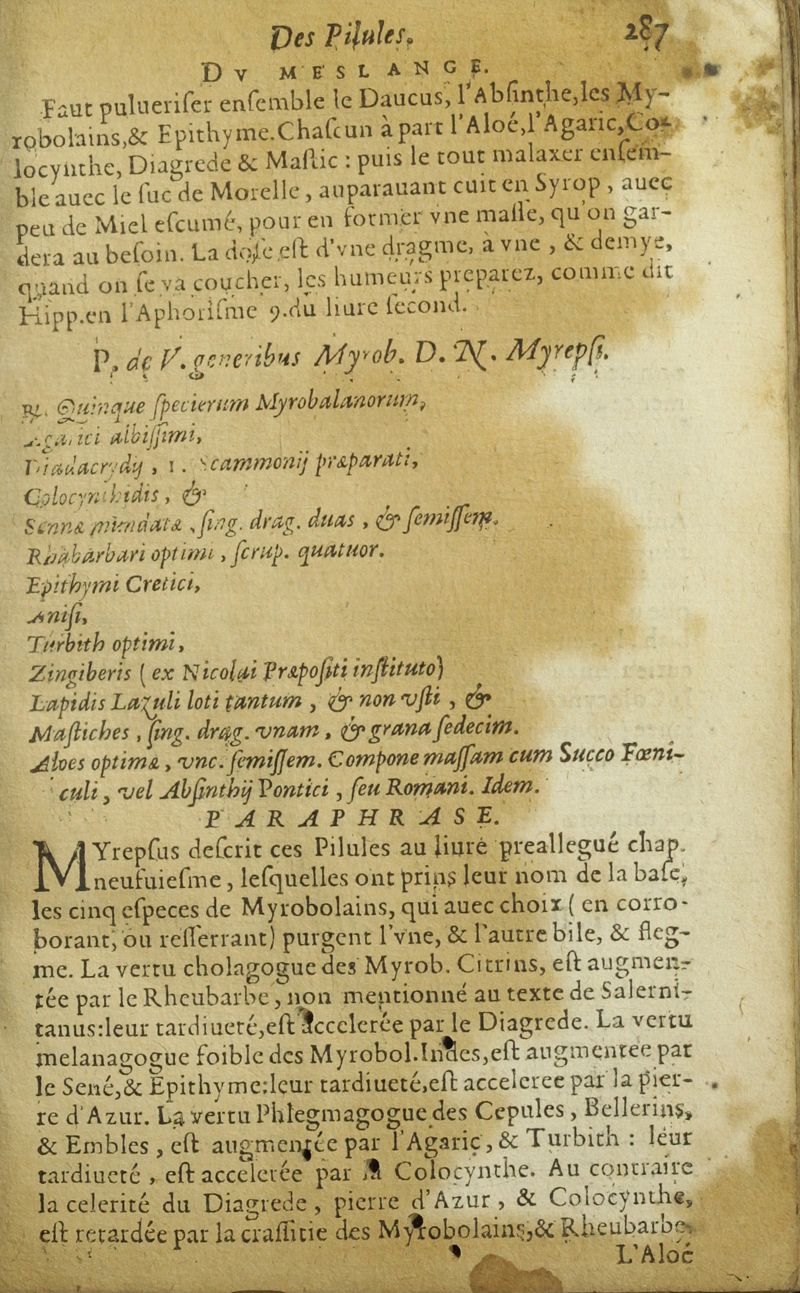 Des Pilules. 287
DV MESLANGE.
Faut puluerifer enfemble le Daucus, l'Abſinthe,les My-
robolains,& Epithyme.Chaſcun à part l'Aloé,l'Agaric,Co-
locynthe, Diagrede & Maſtic : puis le tout malaxer enſem-
ble auec le ſuc de Morelle, auparauant cuit en Syrop, auec
peu de Miel eſcumé, pour en former vne maſſe, qu'on gar-
dera au beſoin. La doſe eſt d'vne dragme, à vne, & demye,
quand on ſe va coucher, les humeurs preparez, comme dit
Hipp.en l'Aphoriſme 9.du liure ſecond.
P. de V. generibus Myrob. D. N. Myrepſi.
℞. Quinque ſpecierum Myrobalanorum,
Agarici albiſſimi,
Diadacrydij, 1. Scammonij præparati,
Colocynthidis, &
Sennæ mundatæ, ſing. drag. duas, & ſemiſſem.
Rhabarbari optimi, ſcrup. quatuor.
Epithymi Cretici,
Aniſi,
Turbith optimi,
Zingiberis (ex Nicolai Præpoſiti inſtituto)
Lapidis Lazuli loti tantum, & non vſti, &
Maſtiches, ſing. drag. vnam, & grana ſedecim.
Aloes optimæ, vnc. ſemiſſem. Compone maſſam cum Succo Fœni-
culi, vel Abſinthij Pontici, ſeu Romani. Idem.
PARAPHRASE.
MYrepſus deſcrit ces Pilules au liure preallegué chap.
neufuieſme, leſquelles ont prins leur nom de la baſe,
les cinq eſpeces de Myrobolains, qui auec choix (en corro-
borant, ou reſſerrant) purgent l'vne, & l'autre bile, & fleg-
me. La vertu cholagogue des Myrob. Citrins, eſt augmen-
tée par le Rheubarbe, non mentionné au texte de Salerni-
tanus:leur tardiueté,eſt accelerée par le Diagrede. La vertu
melanagogue foible des Myrobol.Indes,eſt augmentée par
le Sené,& Epithyme:leur tardiueté,eſt acceleree par la pier-
re d'Azur. La vertu Phlegmagogue des Cepules, Bellerins,
& Embles, eſt augmentée par l'Agaric, & Turbith : leur
tardiueté, eſt accelerée par la Colocynthe. Au contraire
la celerité du Diagrede, pierre d'Azur, & Colocynthe,
eſt retardée par la craſſitie des Myrobolains,& Rheubarbe.
L'Aloé